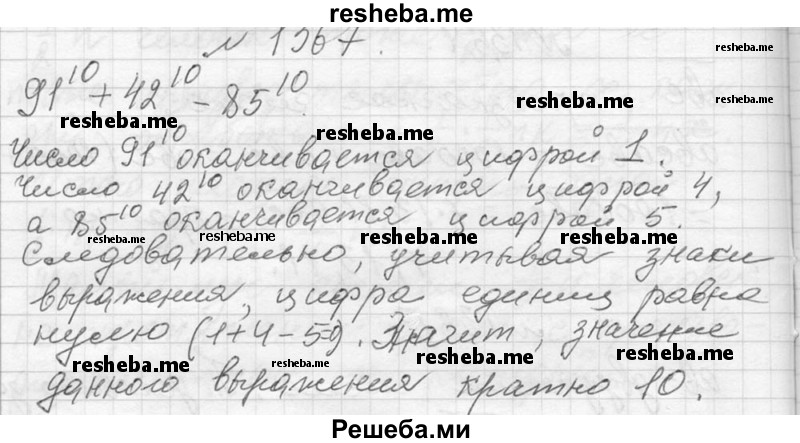 resheba.me
№ 1367.
resheba.me
91¹⁰ + 42¹⁰ - 85¹⁰.
resheba.me
resheba.me
resheba.me
Число 91¹⁰ оканчивается цифрой 1.
Число 42¹⁰ оканчивается цифрой 4,
а 85¹⁰ оканчивается цифрой 5.
resheba.me
resheba.me
resheba.me
resheba.me
Следовательно, учитывая знаки
выражения, цифра единиц равна
нулю (1+4-5=0). Значит, значение
resheba.me
resheba.me
resheba.me
resheba.me
данного выражения кратно 10.
Решеба.ми